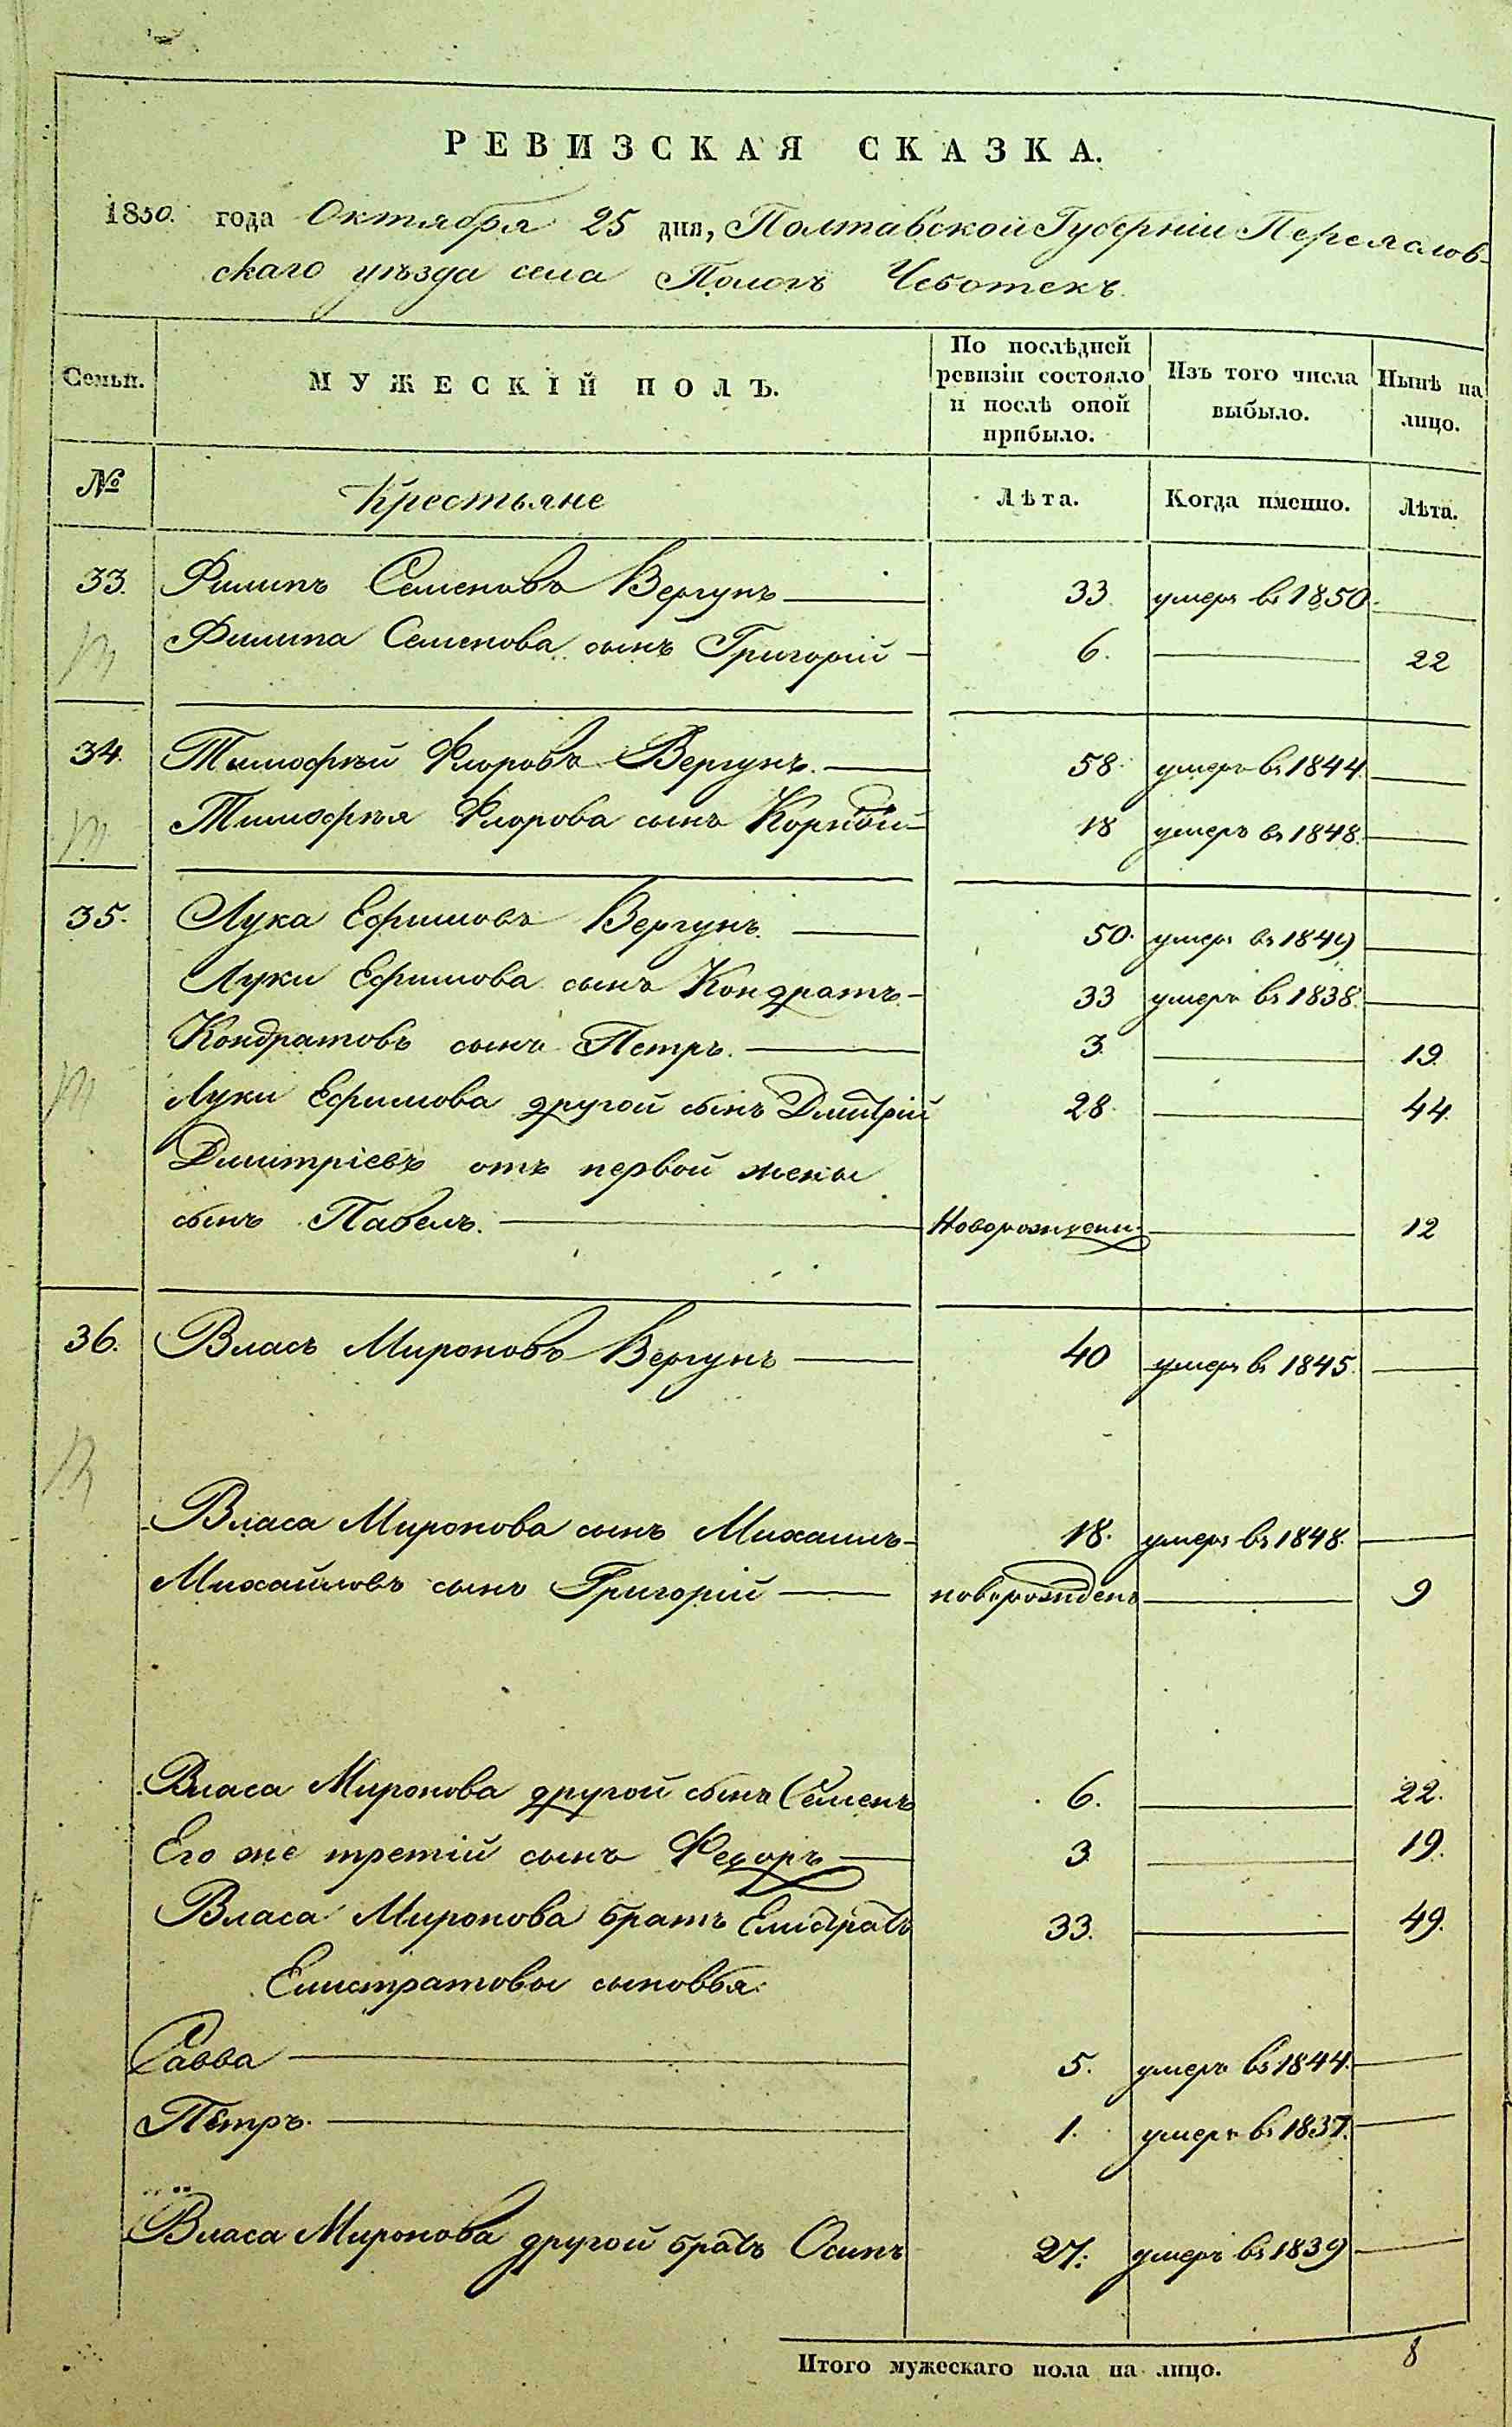 РЕВИЗСКАЯ СКАЗКА.
1850. года Октября 25 дня, Полтавской Губерніи Переяслов-
скаго уѣзда села Пологъ Чеботекъ.
Семьи. МУЖЕСКІЙ ПОЛЪ. По послѣдней ревизіи состояло и послѣ оной прибыло. Изъ того числа выбыло. Нынѣ на лицо.
№ Крестьяне Лѣта. Когда именно. Лѣта.
33. Филипъ Семеновъ Вергунъ 33 умеръ въ 1850
Филипа Семенова сынъ Григорій 6. 22
34. Тимофѣй Флоровъ Вергунъ. 58. умеръ въ 1844.
Тимофѣя Флорова сынъ Корнѣй 18 умеръ въ 1848.
35. Лука Ефимовъ Вергунъ. 50. умеръ въ 1849
Луки Ефимова сынъ Кондратъ 33 умеръ въ 1838.
Кондратовъ сынъ Петръ. 3. 19.
Луки Ефимова другой сынъ Дмитрій 28. 44.
Дмитріевъ отъ первой жены
сынъ Павелъ. Новорожденн. 12
36. Власъ Мироновъ Вергунъ 40 умеръ въ 1845.
Власа Миронова сынъ Михаилъ 18. умеръ въ 1848.
Михайловъ сынъ Григорій новорожденъ 9
Власа Миронова другой сынъ Семенъ 6. 22.
Его же третій сынъ Федоръ 3 19.
Власа Миронова братъ Елистратъ 33. 49.
Елистратовы сыновья:
Савва 5. умеръ въ 1844.
Пётръ. 1. умеръ въ 1837.
Власа Миронова другой братъ Осипъ 27. умеръ въ 1839
Итого мужескаго пола на лицо. 8